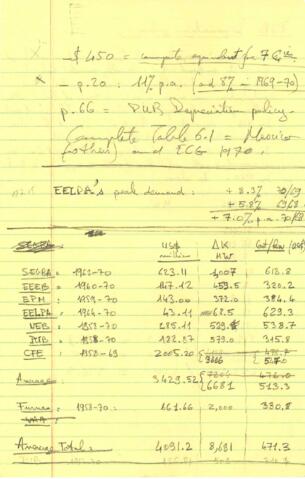 - $ 450 = compute equivalent for 7 Cos.
x - p.20 : 11% p.a. (and 8% in 1969-70)
p. 66 = PUB Depreciation policy.
Complete Table 6.1 = Mexico
(others) and ECG 1970.
EELPA's peak demand : + 8.3% 70/69
+ 5.8% 69/68
+ 7.0% p.a. 70/68
US$ ΔK Cost/kW (US$)
million MW
SEGBA : 1962-70 623.11 1,007 618.8
EEEB : 1960-70 147.12 459.5 320.2
EPM : 1959-70 143.00 372.0 384.4
EELPA : 1964-70 43.11 68.5 629.3
VEB : 1958-70 285.11 529. 538.7
PUB : 1958-70 182.87 579.0 315.8
CFE : 1958-69 2005.20
Average 3429.52 7204 476.0
6681 513.3
Furnas : 1958-70 : 661.66 2,000 330.8
Average Total : 4091.2 8,681 471.3